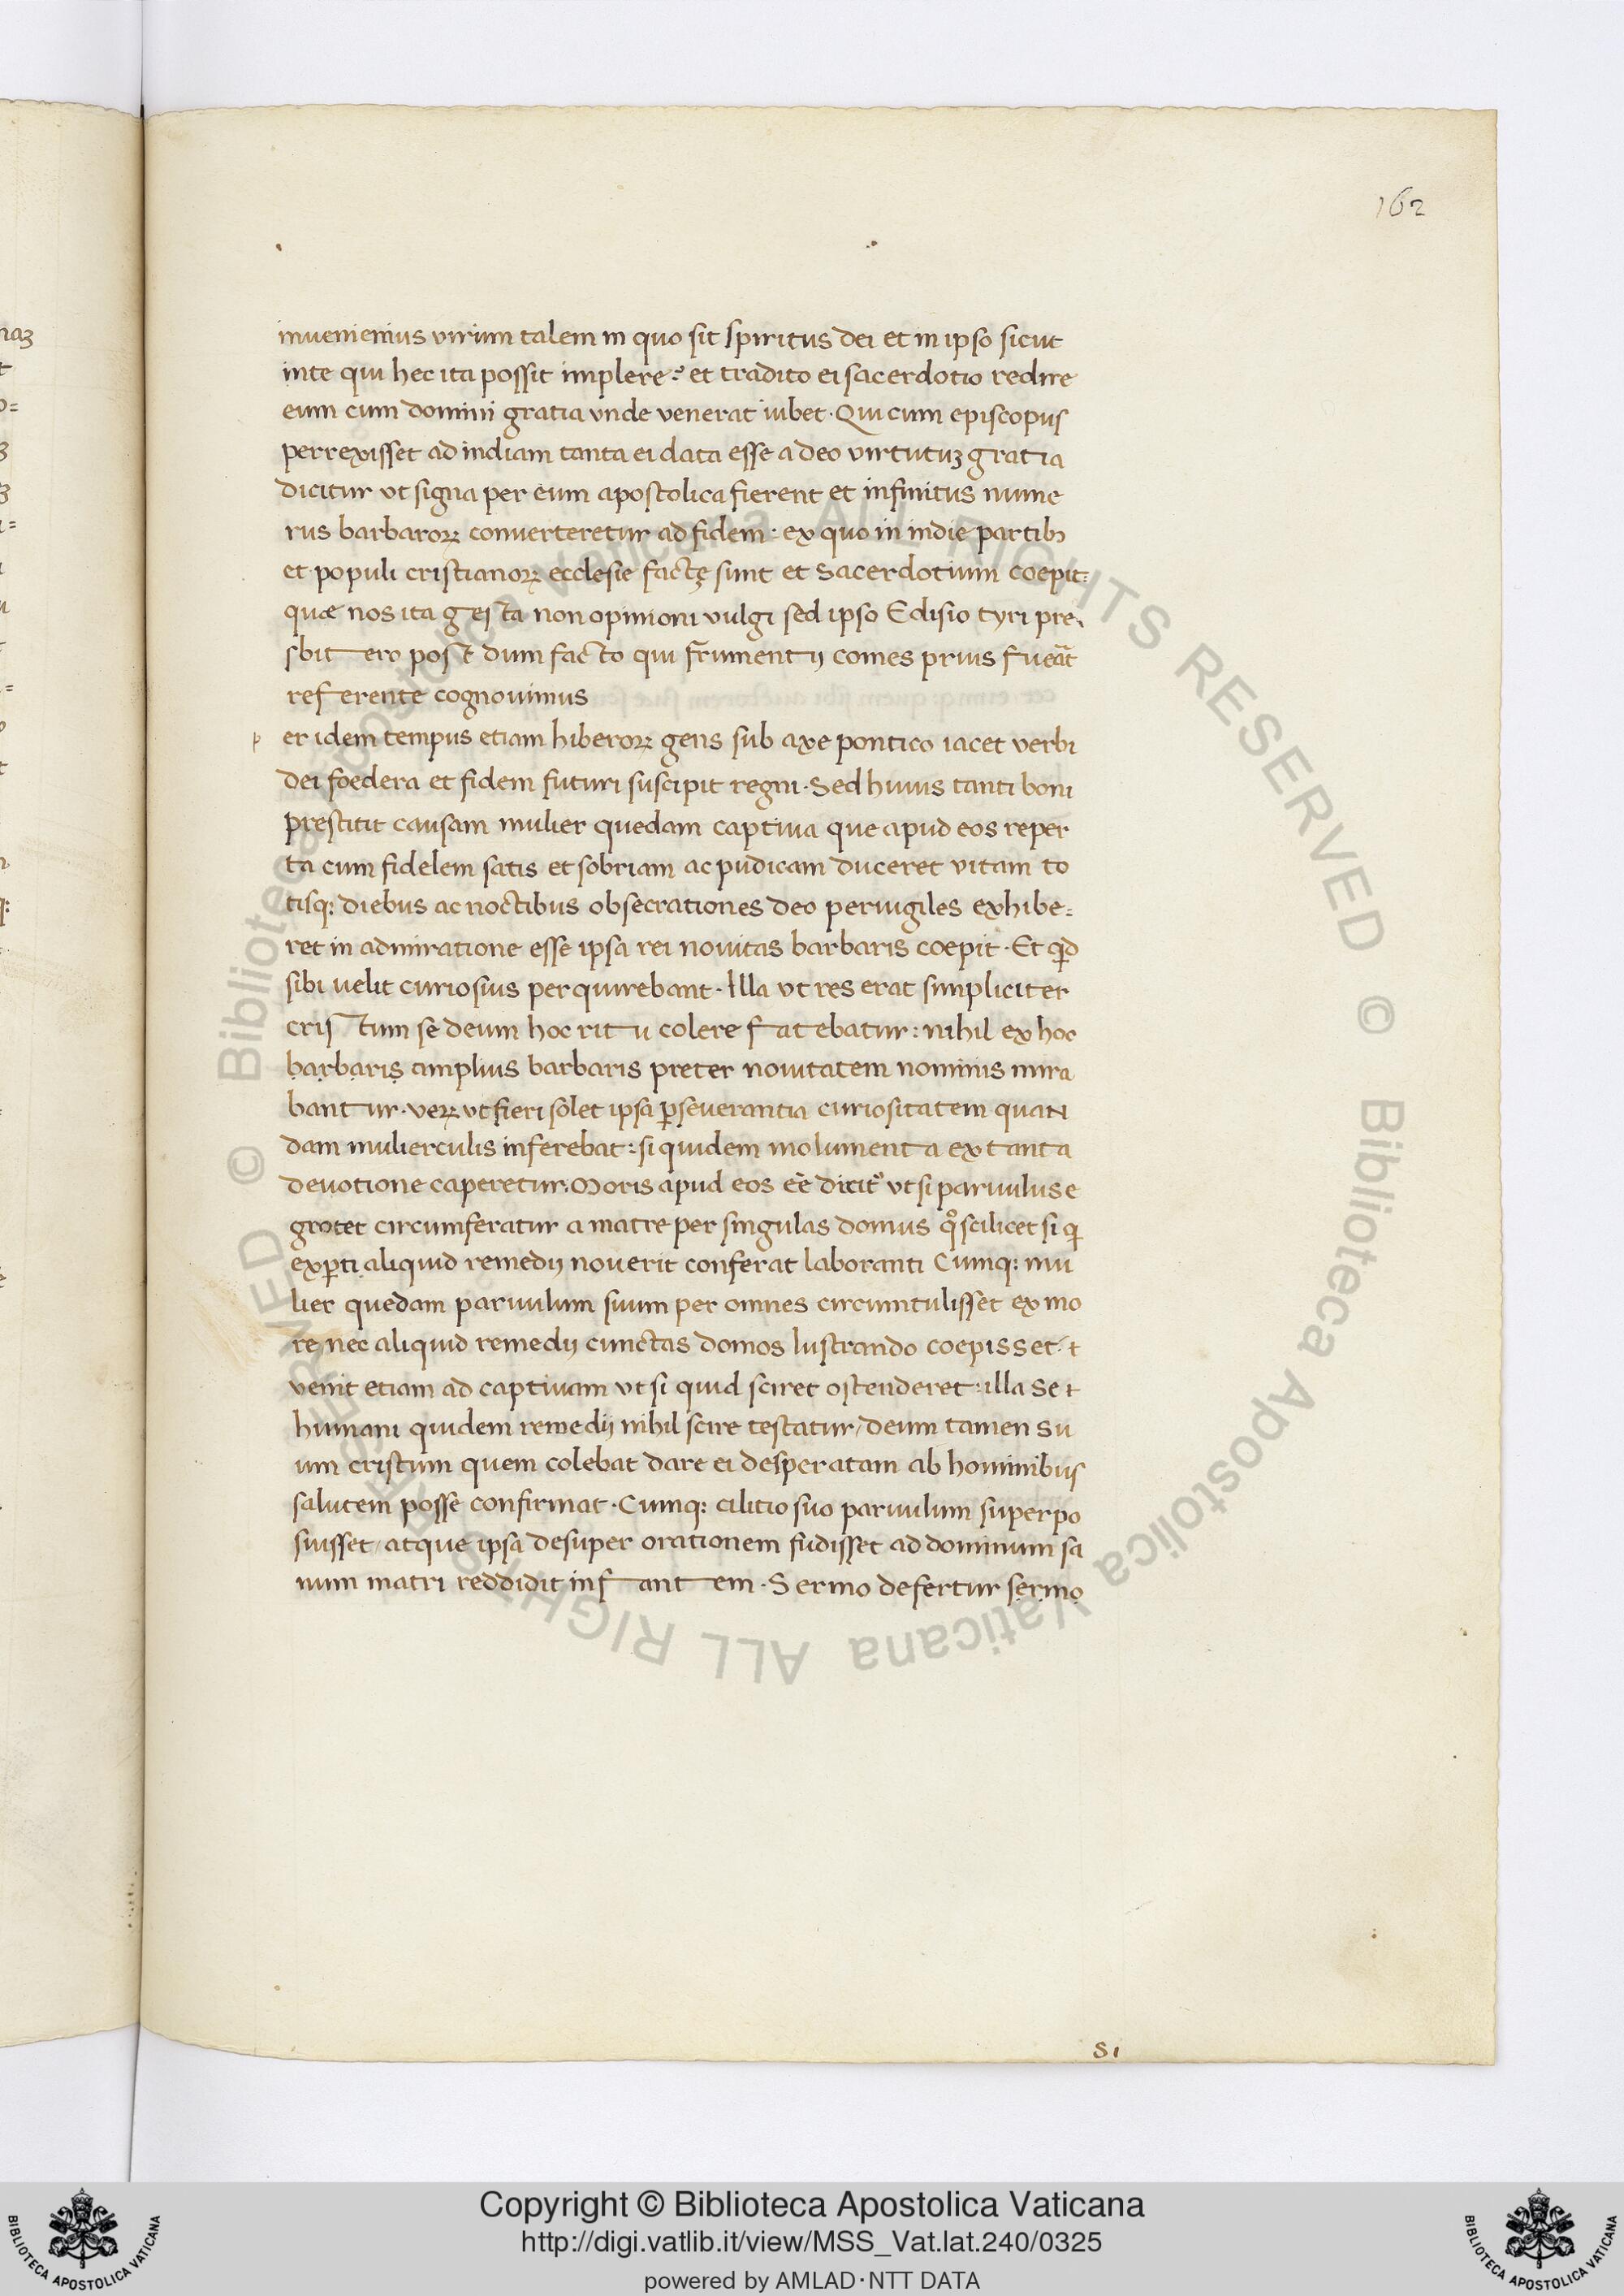 162
inuenienius virum talem in quo sit spiritus dei et in ipso sicut
inte qui hec ita possit implere: et tradito ei sacerdotio redire
eum cum domini gratia vnde venerat iubet · Qui cum episcopus
perrexisset ad indiam tanta ei data esse a deo virtutuꝫ gratia
dicitur vt signa per eum apostolica fierent et infinitus nume
rus barbaroꝝ conuerteretur ad fidem: ex quo in indie partibꝫ
et populi cristianoꝝ ecclesie factę sunt et sacerdotium coepit:
quae nos ita gesta non opinioni vulgi sed ipso Edisio tyri pre
sbitero post dum facto qui frumentij comes prius fueāt
referente cognouimus
p er idem tempus etiam hiberoꝝ gens sub axe pontico iacet verbi
dei foedera et fidem futuri suscipit regni · Sed huius tanti boni
prestitit causam mulier quedam captiua que apud eos reper
ta cum fidelem satis et sobriam ac pudicam duceret vitam to
tisq: diebus ac noctibus obsecrationes deo peruigiles exhibe=
ret in admiratione esse ipsa rei nouitas barbaris coepit · Et qd
sibi uelit curiosius perquirebant · Illa vt res erat simpliciter
cristum se deum hoc ritu colere fatebatur: nihil ex hoc
barbaris amplius barbaris preter nouitatem nominis mira
bantur · ueꝝ vt fieri solet ipsa ꝑseuerantia curiositatem quan
dam mulierculis inferebat: si quidem molumenta ex tanta
deuotione caperetur. Moris apud eos eē dicit᷑ vt si paruulus e
grotet circumferatur a matre per singulas domus qͦ scilicet si q
exꝑti aliquid remedij nouerit conferat laboranti Cumq: mu
lier quedam paruulum suum per omnes circumtulisset ex mo
re nec aliquid remedij cunctas domos lustrando coepisset t
venit etiam ad captiuam vt si quid sciret ostenderet: illa se t
humani quidem remedij nihil scire testatur/ deum tamen su
um cristum quem colebat dare ei desperatam ab hominibus
salutem posse confirmat · Cumq: cilitio suo paruulum superpo
suisset/ atque ipsa desuper orationem fudisset ad dominum sa
num matri reddidit infantem · Sermo defertur sermo
SI
Copyright © Biblioteca Apostolica Vaticana
http://digi.vatlib.it/view/MSS_Vat.lat.240/0325
powered by AMLAD·NTT DATA
© Biblioteca Apostolica Vaticana ALL RIGHTS RESERVED © Biblioteca Apostolica Vaticana ALL RIGHTS RESERVED
BIBLIOTECA APOSTOLICA VATICANA
BIBLIOTECA APOSTOLICA VATICANA